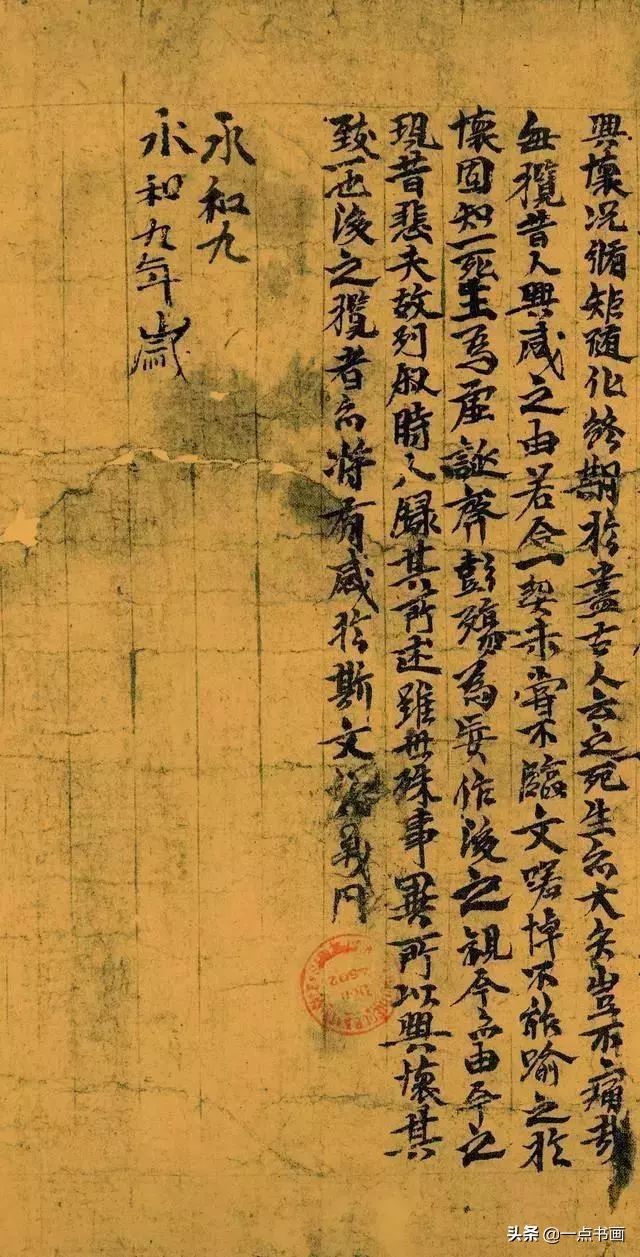 興懷况脩矩随化終期於盡古人云之死生亦大矣豈不痛哉
每攬昔人興感之由若合一契未甞不臨文嗟悼不能喻之於
懷固知一死生為虛誕齊彭殤為妄作後之視今亦由今之
視昔悲夫故列叙時人錄其所述雖世殊事異所以興懷其
致一也後之攬者亦將有感於斯文
永和九
永和九年歲
头条 @一点书画